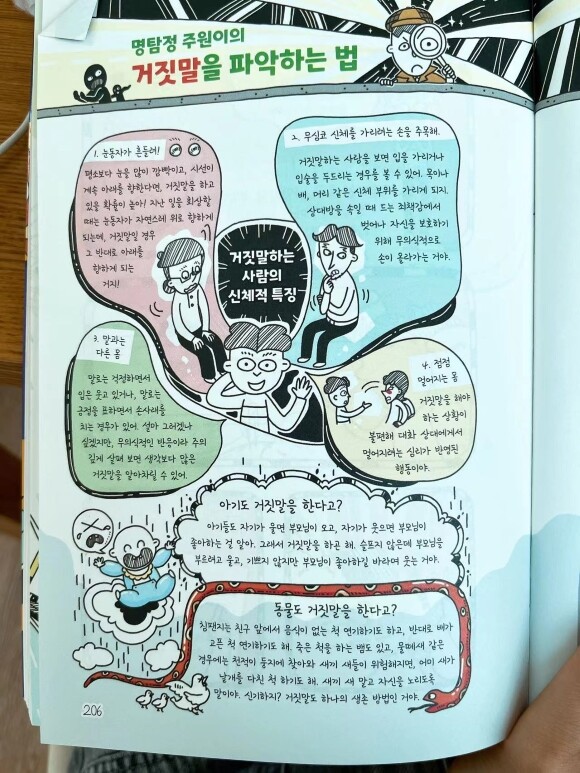 명탐정 주원이의
거짓말을 파악하는 법
1. 눈동자가 흔들려!
평소보다 눈을 많이 깜빡이고, 시선이
계속 아래를 향한다면, 거짓말을 하고
있을 확률이 높아! 지난 일을 회상할
때는 눈동자가 자연스레 위로 향하게
되는데, 거짓말일 경우
그 반대로 아래를
향하게 되는
거지!
2. 무심코 신체를 가리려는 손을 주목해.
거짓말하는 사람을 보면 입을 가리거나
입술을 두드리는 경우를 볼 수 있어. 목이나
배, 머리 같은 신체 부위를 가리게 되지.
상대방을 속일 때 드는 죄책감에서
벗어나 자신을 보호하기
위해 무의식적으로
손이 올라가는 거야.
거짓말하는
사람의
신체적 특징
3. 말과는
다른 몸
말로는 걱정하면서
입은 웃고 있거나, 말로는
긍정을 표하면서 손사래를
치는 경우가 있어. 설마 그러겠나
싶겠지만, 무의식적인 반응이라 주의
깊게 살펴 보면 생각보다 많은
거짓말을 알아차릴 수 있어.
4. 점점
멀어지는 몸
거짓말을 해야
하는 상황이
불편해 대화 상대에게서
멀어지려는 심리가 반영된
행동이야.
아기도 거짓말을 한다고?
아기들도 자기가 울면 부모님이 오고, 자기가 웃으면 부모님이
좋아하는 걸 알아. 그래서 거짓말을 하곤 해. 슬프지 않은데 부모님을
부르려고 울고, 기쁘지 않지만 부모님이 좋아하길 바라며 웃는 거야.
동물도 거짓말을 한다고?
침팬지는 친구 앞에서 음식이 없는 척 연기하기도 하고, 반대로 배가
고픈 척 연기하기도 해. 죽은 척을 하는 뱀도 있고, 물떼새 같은
경우에는 천적이 둥지에 찾아와 새끼 새들이 위험해지면, 어미 새가
날개를 다친 척 하기도 해. 새끼 새 말고 자신을 노리도록
말이야. 신기하지? 거짓말도 하나의 생존 방법인 거야.
206